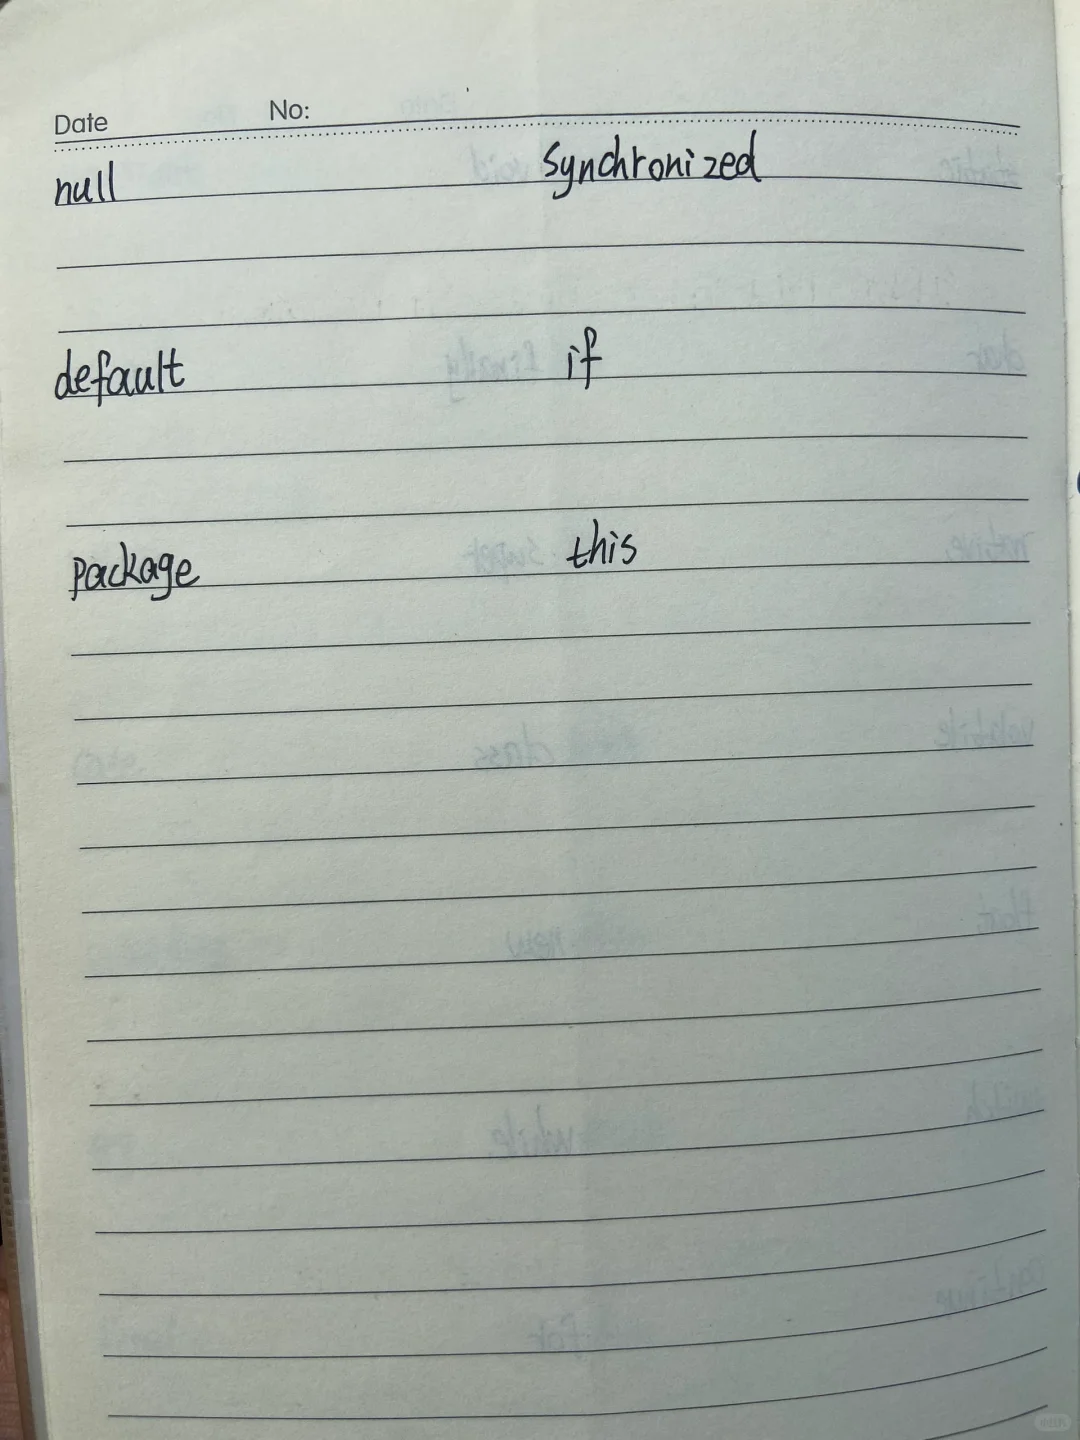 Date No:
null synchronized
default if
package this